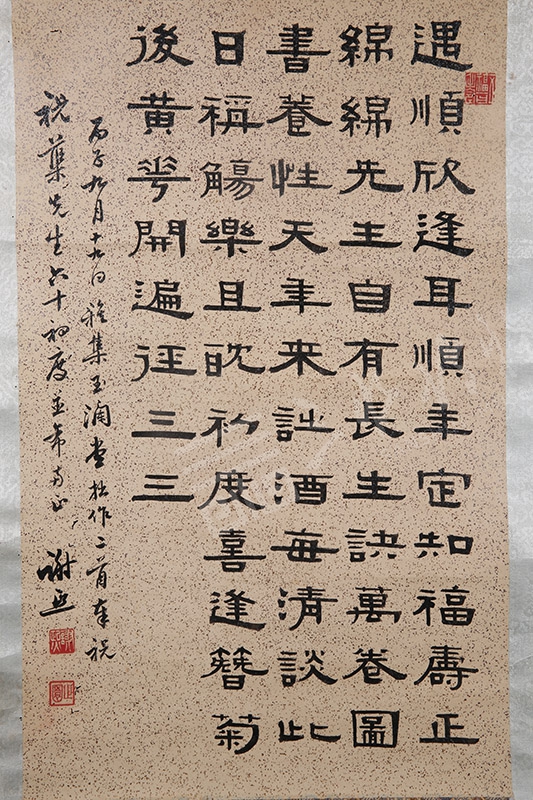 遇順欣逢耳順年定知福壽正
綿綿先生自有長生訣萬卷圖
書養性天年来酒每清談此
日稱觴樂且眈初度喜逢簪菊
後黄花開遍徑三三
丙子九月十九日雅集玉瀾堂拙作二首奉祝
先生六十初度並希正
謝